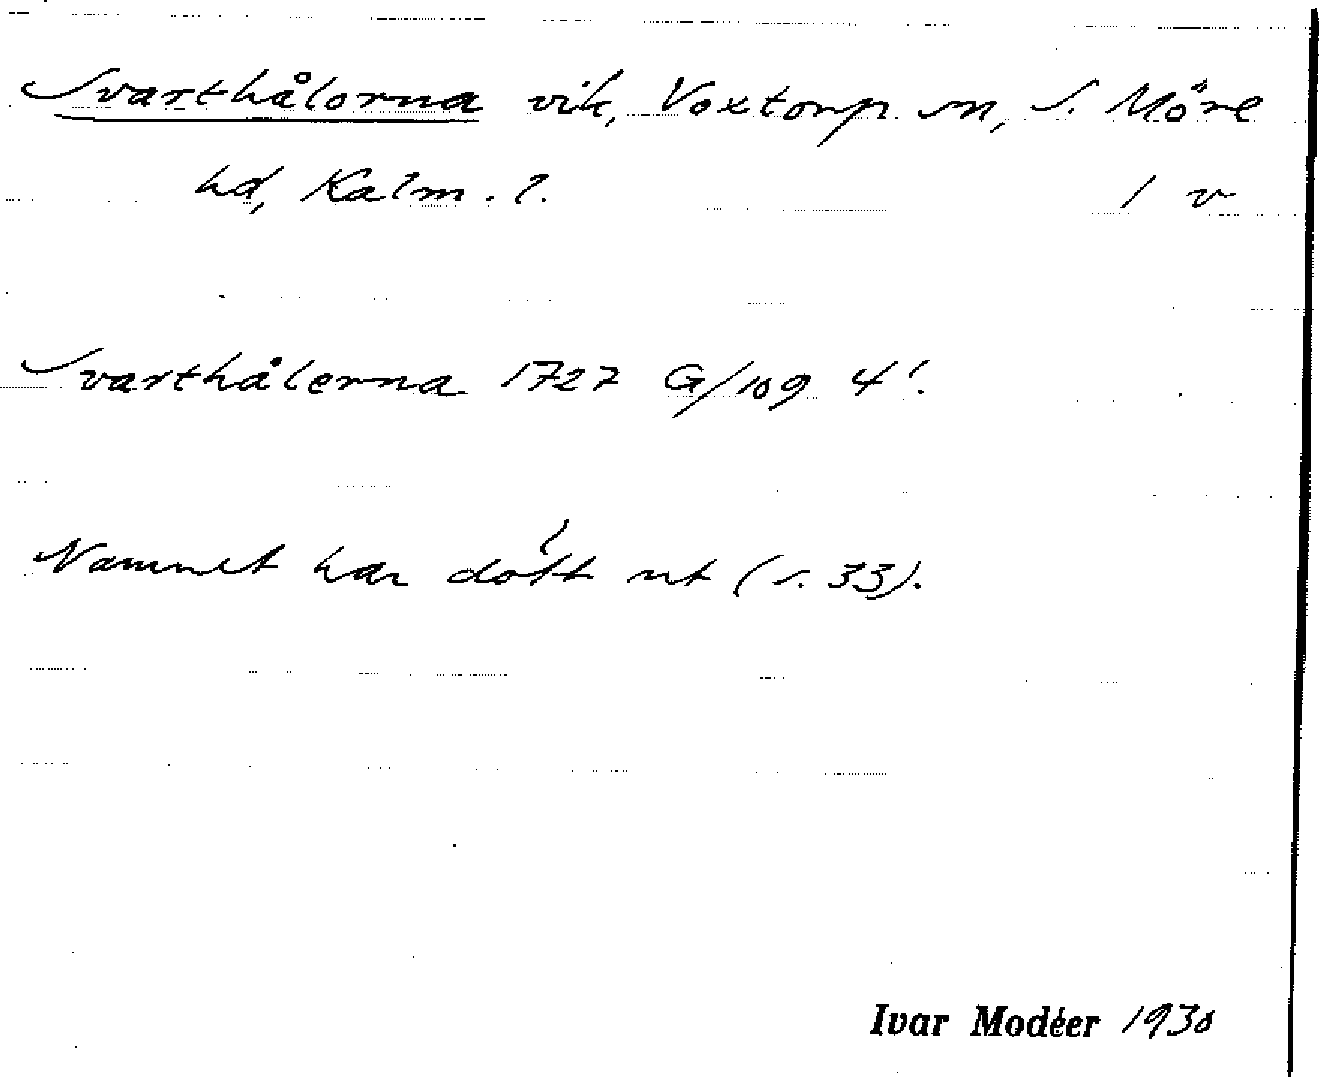 Svarthålorna vik, Voxtorp sn, S. Möre
hd, Kalm. l. 1 v
Svarthålerna 1727 G/109 4'.
Namnet har dött ut (s. 33).
Ivar Modéer 1930